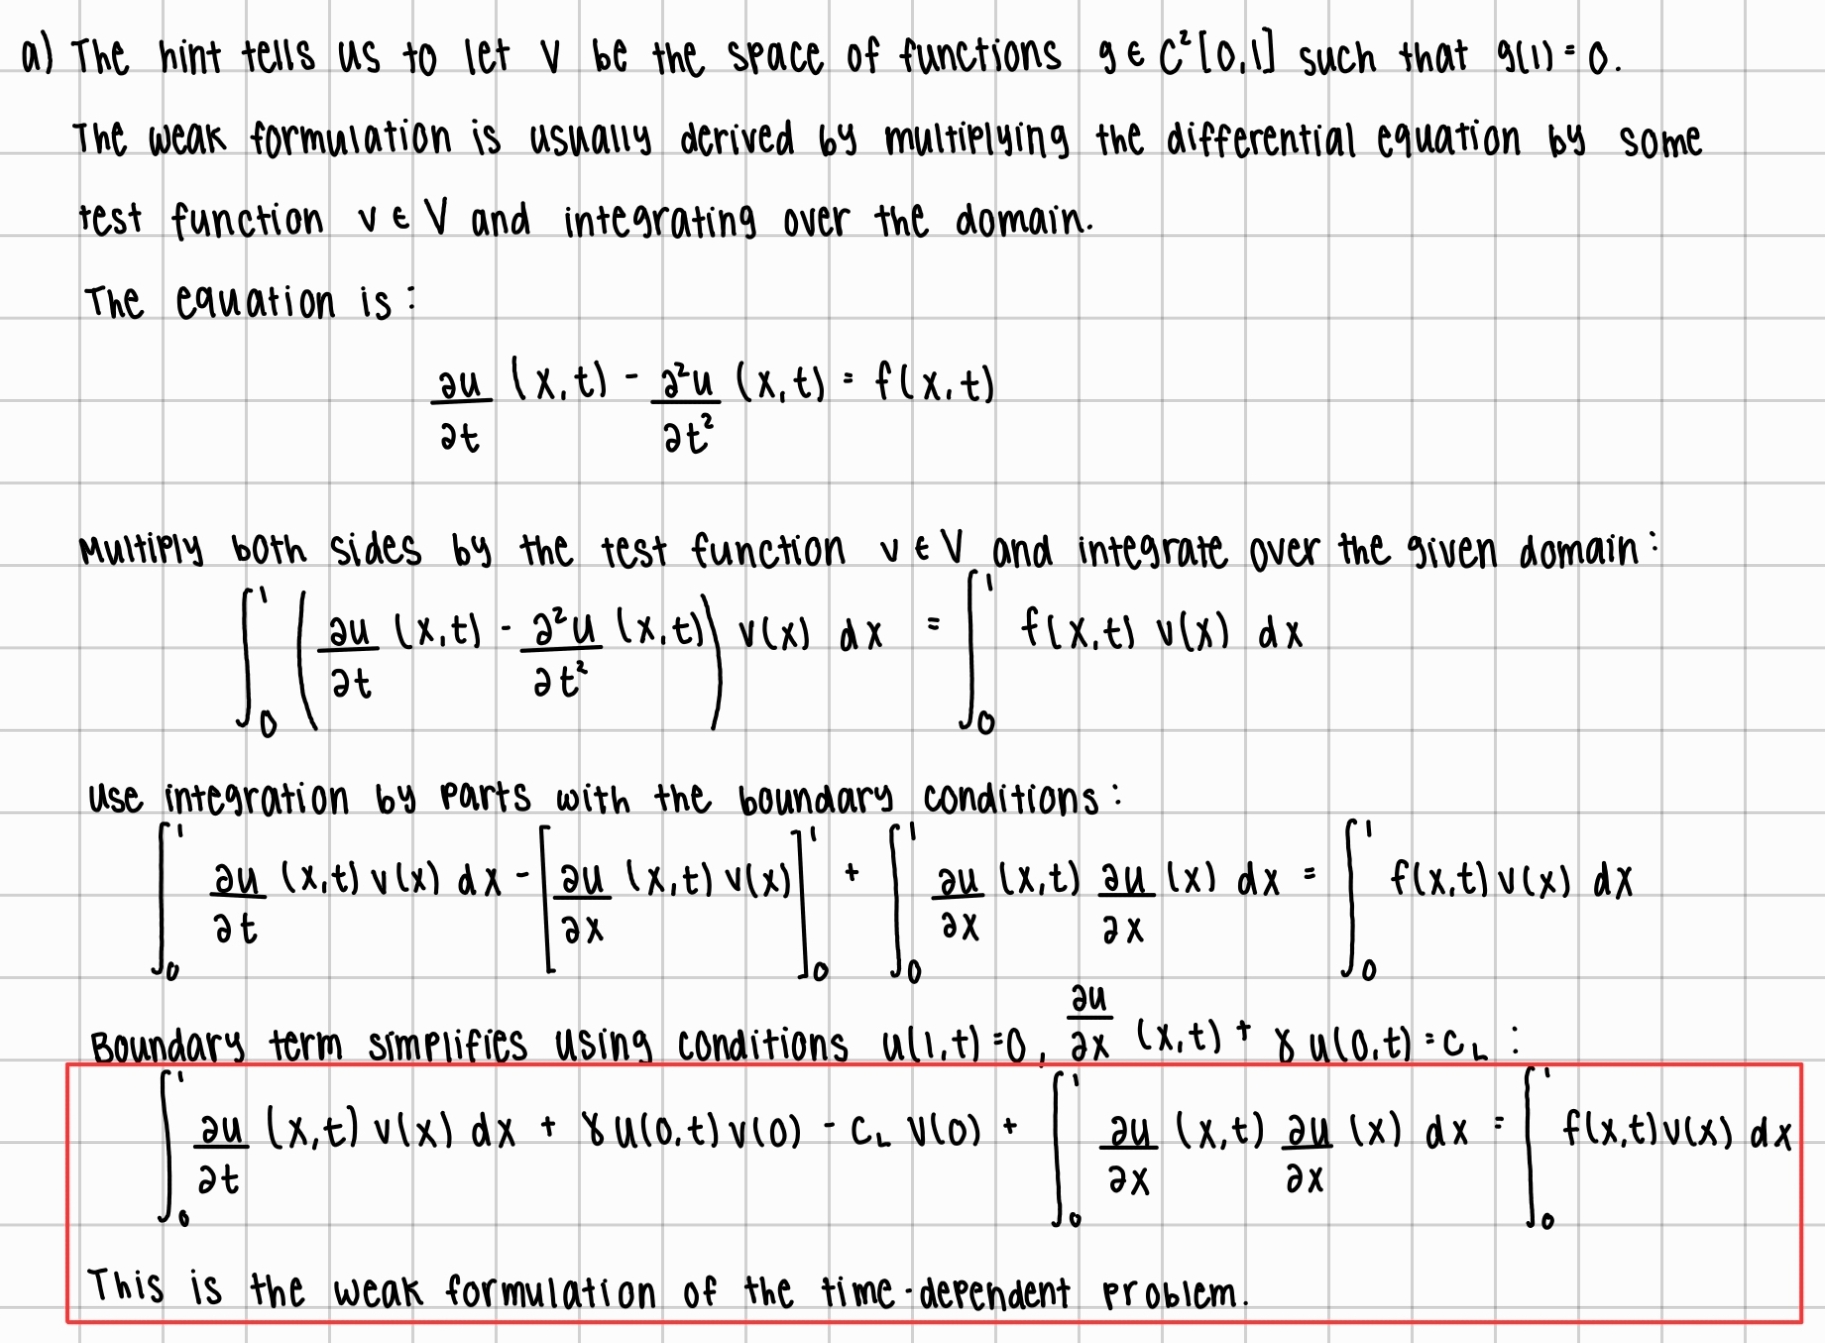 a) The hint tells us to let V be the space of functions g ∈ C²[0,1] such that g(1) = 0.
The weak formulation is usually derived by multiplying the differential equation by some
test function v ∈ V and integrating over the domain.
The equation is:
∂u/∂t (x,t) - ∂²u/∂t² (x,t) = f(x,t)
Multiply both sides by the test function v ∈ V and integrate over the given domain:
∫₀¹ (∂u/∂t (x,t) - ∂²u/∂t² (x,t)) v(x) dx = ∫₀¹ f(x,t) v(x) dx
use integration by parts with the boundary conditions:
∫₀¹ ∂u/∂t (x,t) v(x) dx - [∂u/∂x (x,t) v(x)]₀¹ + ∫₀¹ ∂u/∂x (x,t) ∂u/∂x (x) dx = ∫₀¹ f(x,t) v(x) dx
Boundary term simplifies using conditions u(1,t)=0, ∂u/∂x (x,t) + γ u(0,t) = c_L :
∫₀¹ ∂u/∂t (x,t) v(x) dx + γ u(0,t) v(0) - c_L v(0) + ∫₀¹ ∂u/∂x (x,t) ∂u/∂x (x) dx = ∫₀¹ f(x,t) v(x) dx
This is the weak formulation of the time-dependent problem.